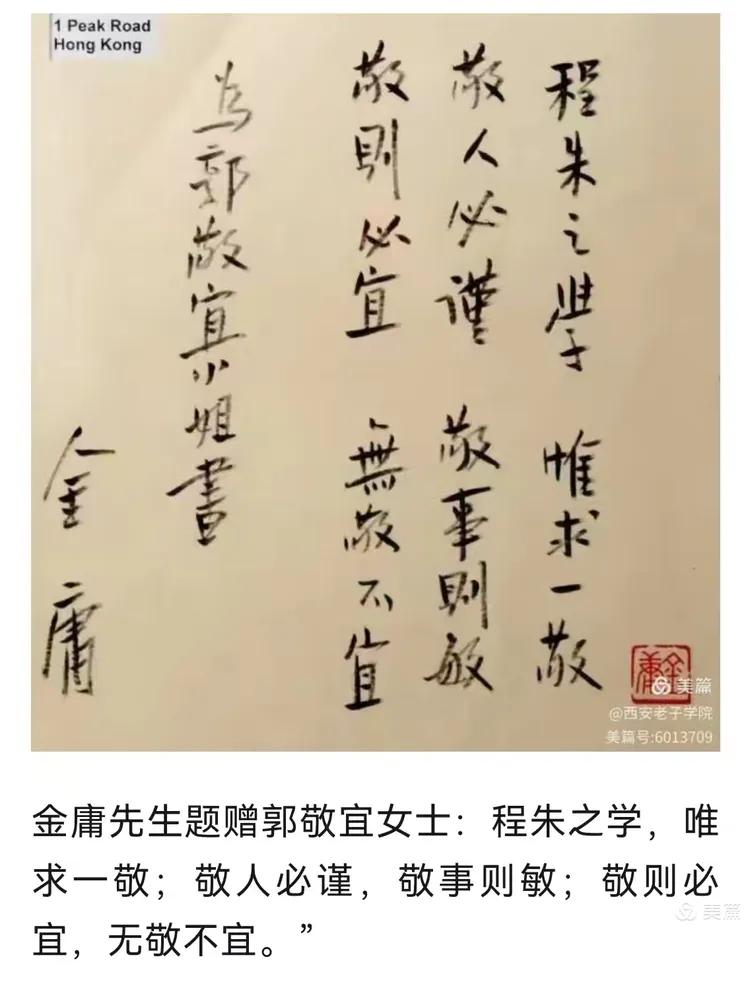 1 Peak Road
Hong Kong
程朱之學 惟求一敬
敬人必謹 敬事則敏
敬則必宜 無敬不宜
為郭敬宜小姐書
金庸
金庸
美篇
@西安老子学院
美篇号:6013709
金庸先生题赠郭敬宜女士：程朱之学，唯
求一敬；敬人必谨，敬事则敏；敬则必
宜，无敬不宜。”
美篇